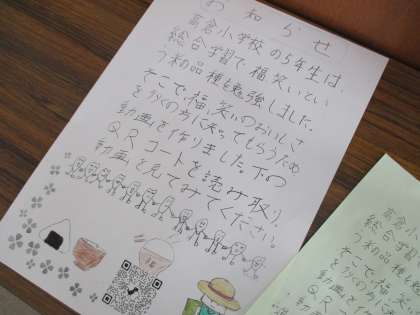 お知らせ
高倉小学校の5年生は、
総合学習で、福笑いとい
う米の品種を勉強しました。
そこで、福笑いのおいしさ
を多くの方に知ってもらうため
動画を作りました。下の
QRコードを読み取り、
動画を見てみてください。
高倉小
総合学習
う米の品種
そこで、福
を多くの方
動画を
QR